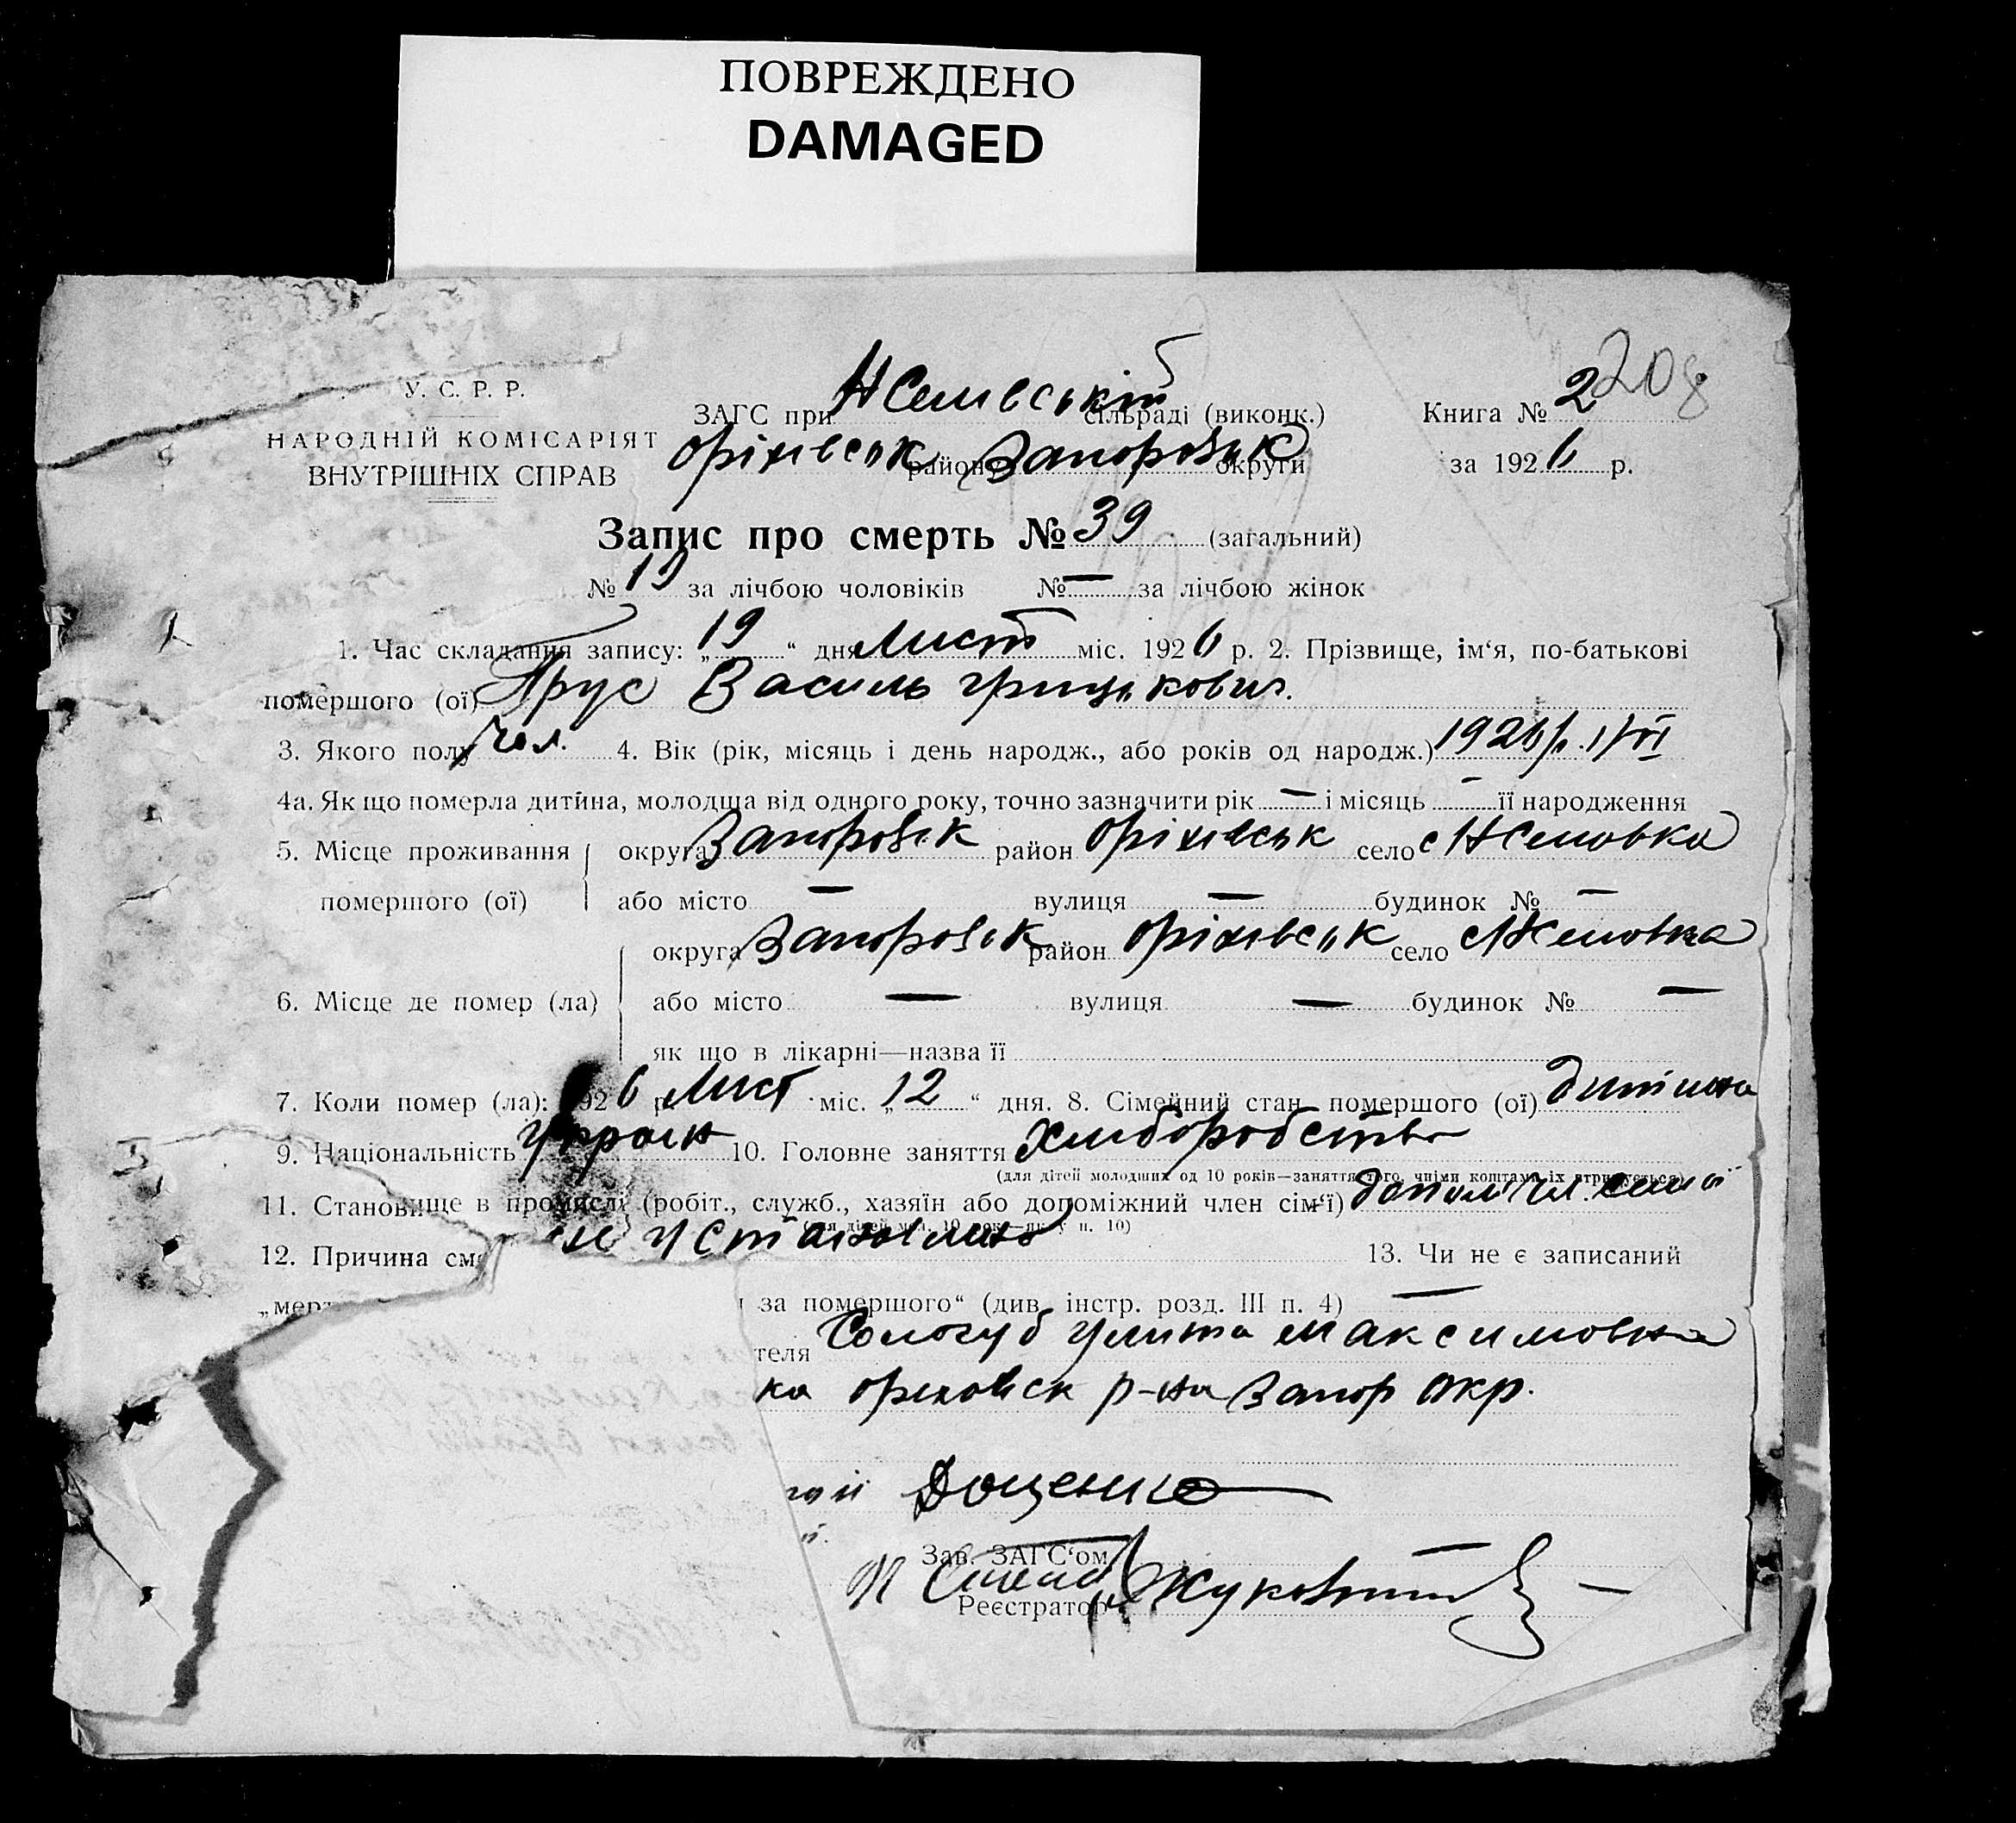 ПОВРЕЖДЕНО
DAMAGED
208
У. С. Р. Р.
НАРОДНІЙ КОМІСАРІЯТ
ВНУТРІШНІХ СПРАВ
ЗАГС при сільраді (виконк.)
Оріхівськ району Запорозьк округи
Книга № 2
за 1926 р.
Запис про смерть № 39 (загальний)
№ 19 за лічбою чоловіків № — за лічбою жінок
1. Час складання запису: „19“ дня Лист міс. 1926 р. 2. Прізвище, ім‘я, по-батькові
помершого (ої) Василь Грицькович.
3. Якого полу Чол. 4. Вік (рік, місяць і день народж., або років од народж.) 1926 р. 1/VI
4а. Як що померла дитина, молодша від одного року, точно зазначити рік — і місяць — її народження
5. Місце проживання помершого (ої) округа Запорозьк район Оріхівськ село
або місто — вулиця — будинок № —
6. Місце де помер (ла) округа Запорозьк район Оріхівськ село
або місто — вулиця — будинок № —
як що в лікарні—назва її
7. Коли помер (ла): 926 р. Лист міс. „12“ дня. 8. Сімейний стан помершого (ої) дитина
9. Національність Україн 10. Головне заняття Хліборобство
(для дітей молодших од 10 років—заняття того, чиїми коштами їх утримується)
11. Становище в промислі (робіт., служб., хазяїн або допоміжний член сім‘ї) допом чл. сім'ї
(для дітей мол. 10 рок.—як у п. 10)
12. Причина сме не установлено 13. Чи не є записаний
„мерт за помершого“ (див. інстр. розд. III п. 4) —
теля Сологуб Улита Максимовна
ка Ореховск р-на Запор Окр.
Доценко
Зав. ЗАГС‘ом
Реєстратор